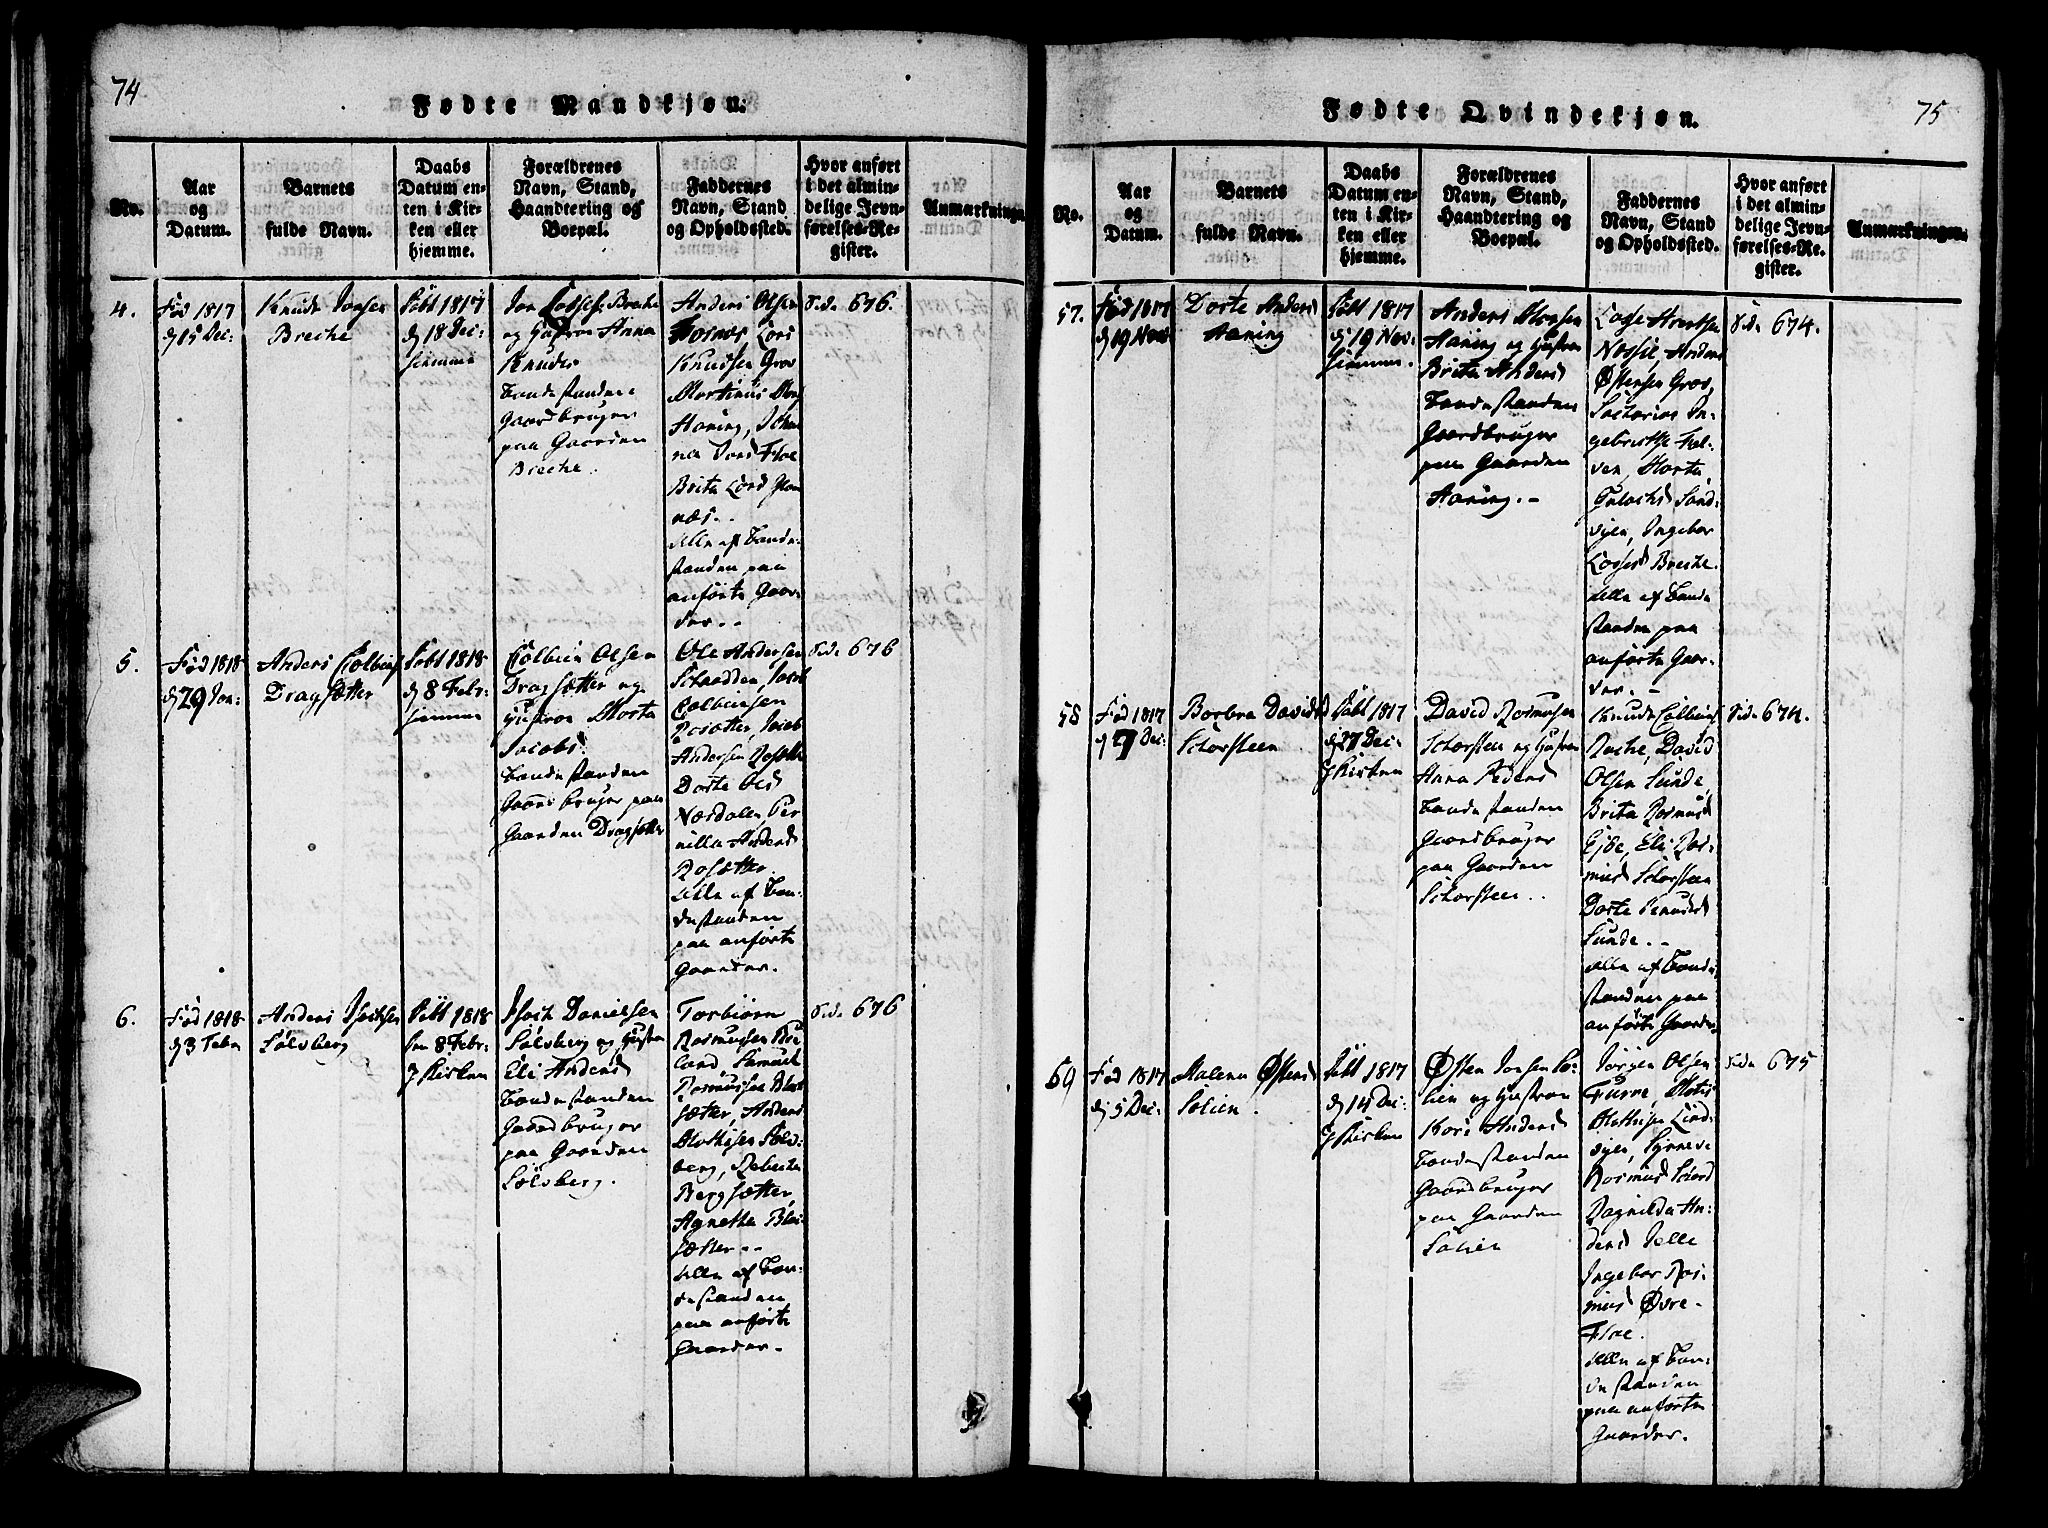 74
Fødte Mandkjøn.
No.
Aar
og
Datum.
Barnets
fulde Navn.
Daabs
Datum en-
ten i Kir-
ken eller
hjemme.
Forældrenes
Navn, Stand,
Haandtering og
Boepæl.
Faddernes
Navn, Stand
og Opholdssted.
Hvor anført
i det almin-
delige Jevn-
førelses-Re-
gister.
Anmærkninger
4.
Fød 1817
d 15 Dec:
Knud
Breche
Döbt 1817
d 18 Dec:
hjemme
Breche
og Hustroe Anna
Knuds
Bondestanden
Gaardbruger
paa Gaarden
Breche.
Anders Olsen
Hornæs Lars
Knudsen Grov
Haning,
Floe
Brita
næs..
Alle af Bonde-
standen paa
anførte Gaar-
der..
Side 676.
5.
Fød 1818
d 29 Jan:
Anders Colbeins
Dragsætter
Döbt 1818
d 8 Febr:
hjemme
Colbein Olsen
Dragsætter og
Hustroe Marta
Jacobs
Bondestanden
Gaardbruger paa
Gaarden Dragsætter
Ole Andersen
Colbeinsen
Rosætter, Jacob
Andersen Rosætter
Dorte Ols
Nordalen Per
nilla Anders
Rosætter
Alle af Bon-
destanden
paa anførte
Gaarder.
Side 676
6.
Fød 1818
d 3 Febr
Anders Isachsen
Sölvberg
Döbt 1818
den 8 Febr:
I Kirken
Isach Danielsen
Sölvberg og Hustroe
Eli Anders
Bondestanden
Gaardbruger
paa Gaarden
Sölvberg.
Torbiörn
Rasmussen
land
Rasmussen
sætter, Anders
Mathisen Sölv-
berg, Rebecka
Bergsætter,
Agnetha
sætter..
Alle af Bon-
destanden
paa anførte
Gaarder.
Side 676
75
Fødte Qvindekjøn.
No.
Aar
og
Datum.
Barnets
fulde Navn.
Daabs
Datum en-
ten i Kir-
ken eller
hjemme.
Forældrenes
Navn, Stand,
Haandtering og
Boepæl.
Faddernes
Navn, Stand
og Opholdssted.
Hvor anført
i det almin-
delige Jevn-
førelses-Re-
gister.
Anmærkninger.
57.
Fød 1817
d 19 Nov:
Dorte Anders
Haning
Döbt 1817
d 19 Nov:
hjemme.
Anders Monsen
Haning og Hustroe
Brita Anders
Bondestanden
Gaardbruger
paa Gaarden
Haning.-
Nossie, Anders
Østensen Grov,
Zacharias In-
gebrigtse
ven, Marta
vigen, Ingebor
Breche.
Alle af Bonde
standen paa
anførte Gaar-
der.-
Side 674.
58
Fød 1817
d 27 Dec:
Barbra Davids
Schorsteen
Döbt 1817
d 27 Dec:
I Kirken
David Rasmusen
Schorsteen og Hustroe
Anna Peders
Bondestanden
Gaardbruger
paa Gaarden
Schorsteen..
Knud Colbeins
Rache, David
Olsen Lunde,
Brita Rasmus
Eli Ras-
mus Schorsteen
Dorte
Lunde.-
Alle af Bonde
standen paa
anførte Gaarder
Side 674.
59
Fød 1817
d 5 Dec:
Malena Østens
Solien.
Döbt 1817
d 14 Dec:
I Kirken
Østen Jonsen So-
lien og Hustroe
Kari Anders
Bondestanden
Gaardbruger
paa Gaarden
Solien
Jörgen Olsen
Furre,
Mathisen
vigen, Synneve
Rasmus
Ragnilda An-
ders Jelle
Ingebor Ras-
mus Øvre-
Floe.
Alle af Bon-
destanden
paa anførte
Gaarder.
Side 675